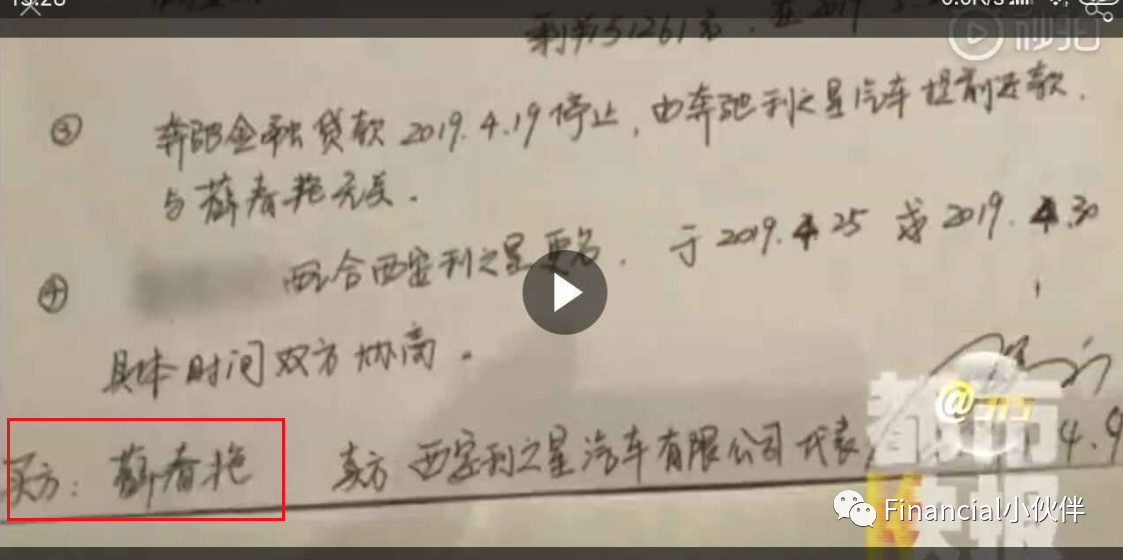 剩余51261元. 在2019.
秒拍
③ 奔驰金融贷款 2019.4.19停止, 由奔驰利之星汽车提前还款.
与薛春艳无关.
④ 配合西安利之星更名. 于2019.4.25 或 2019.4.30
具体时间双方协商.
买方: 薛春艳 卖方 西安利之星汽车有限公司代表
4.9
@
都市
快报
Financial小伙伴